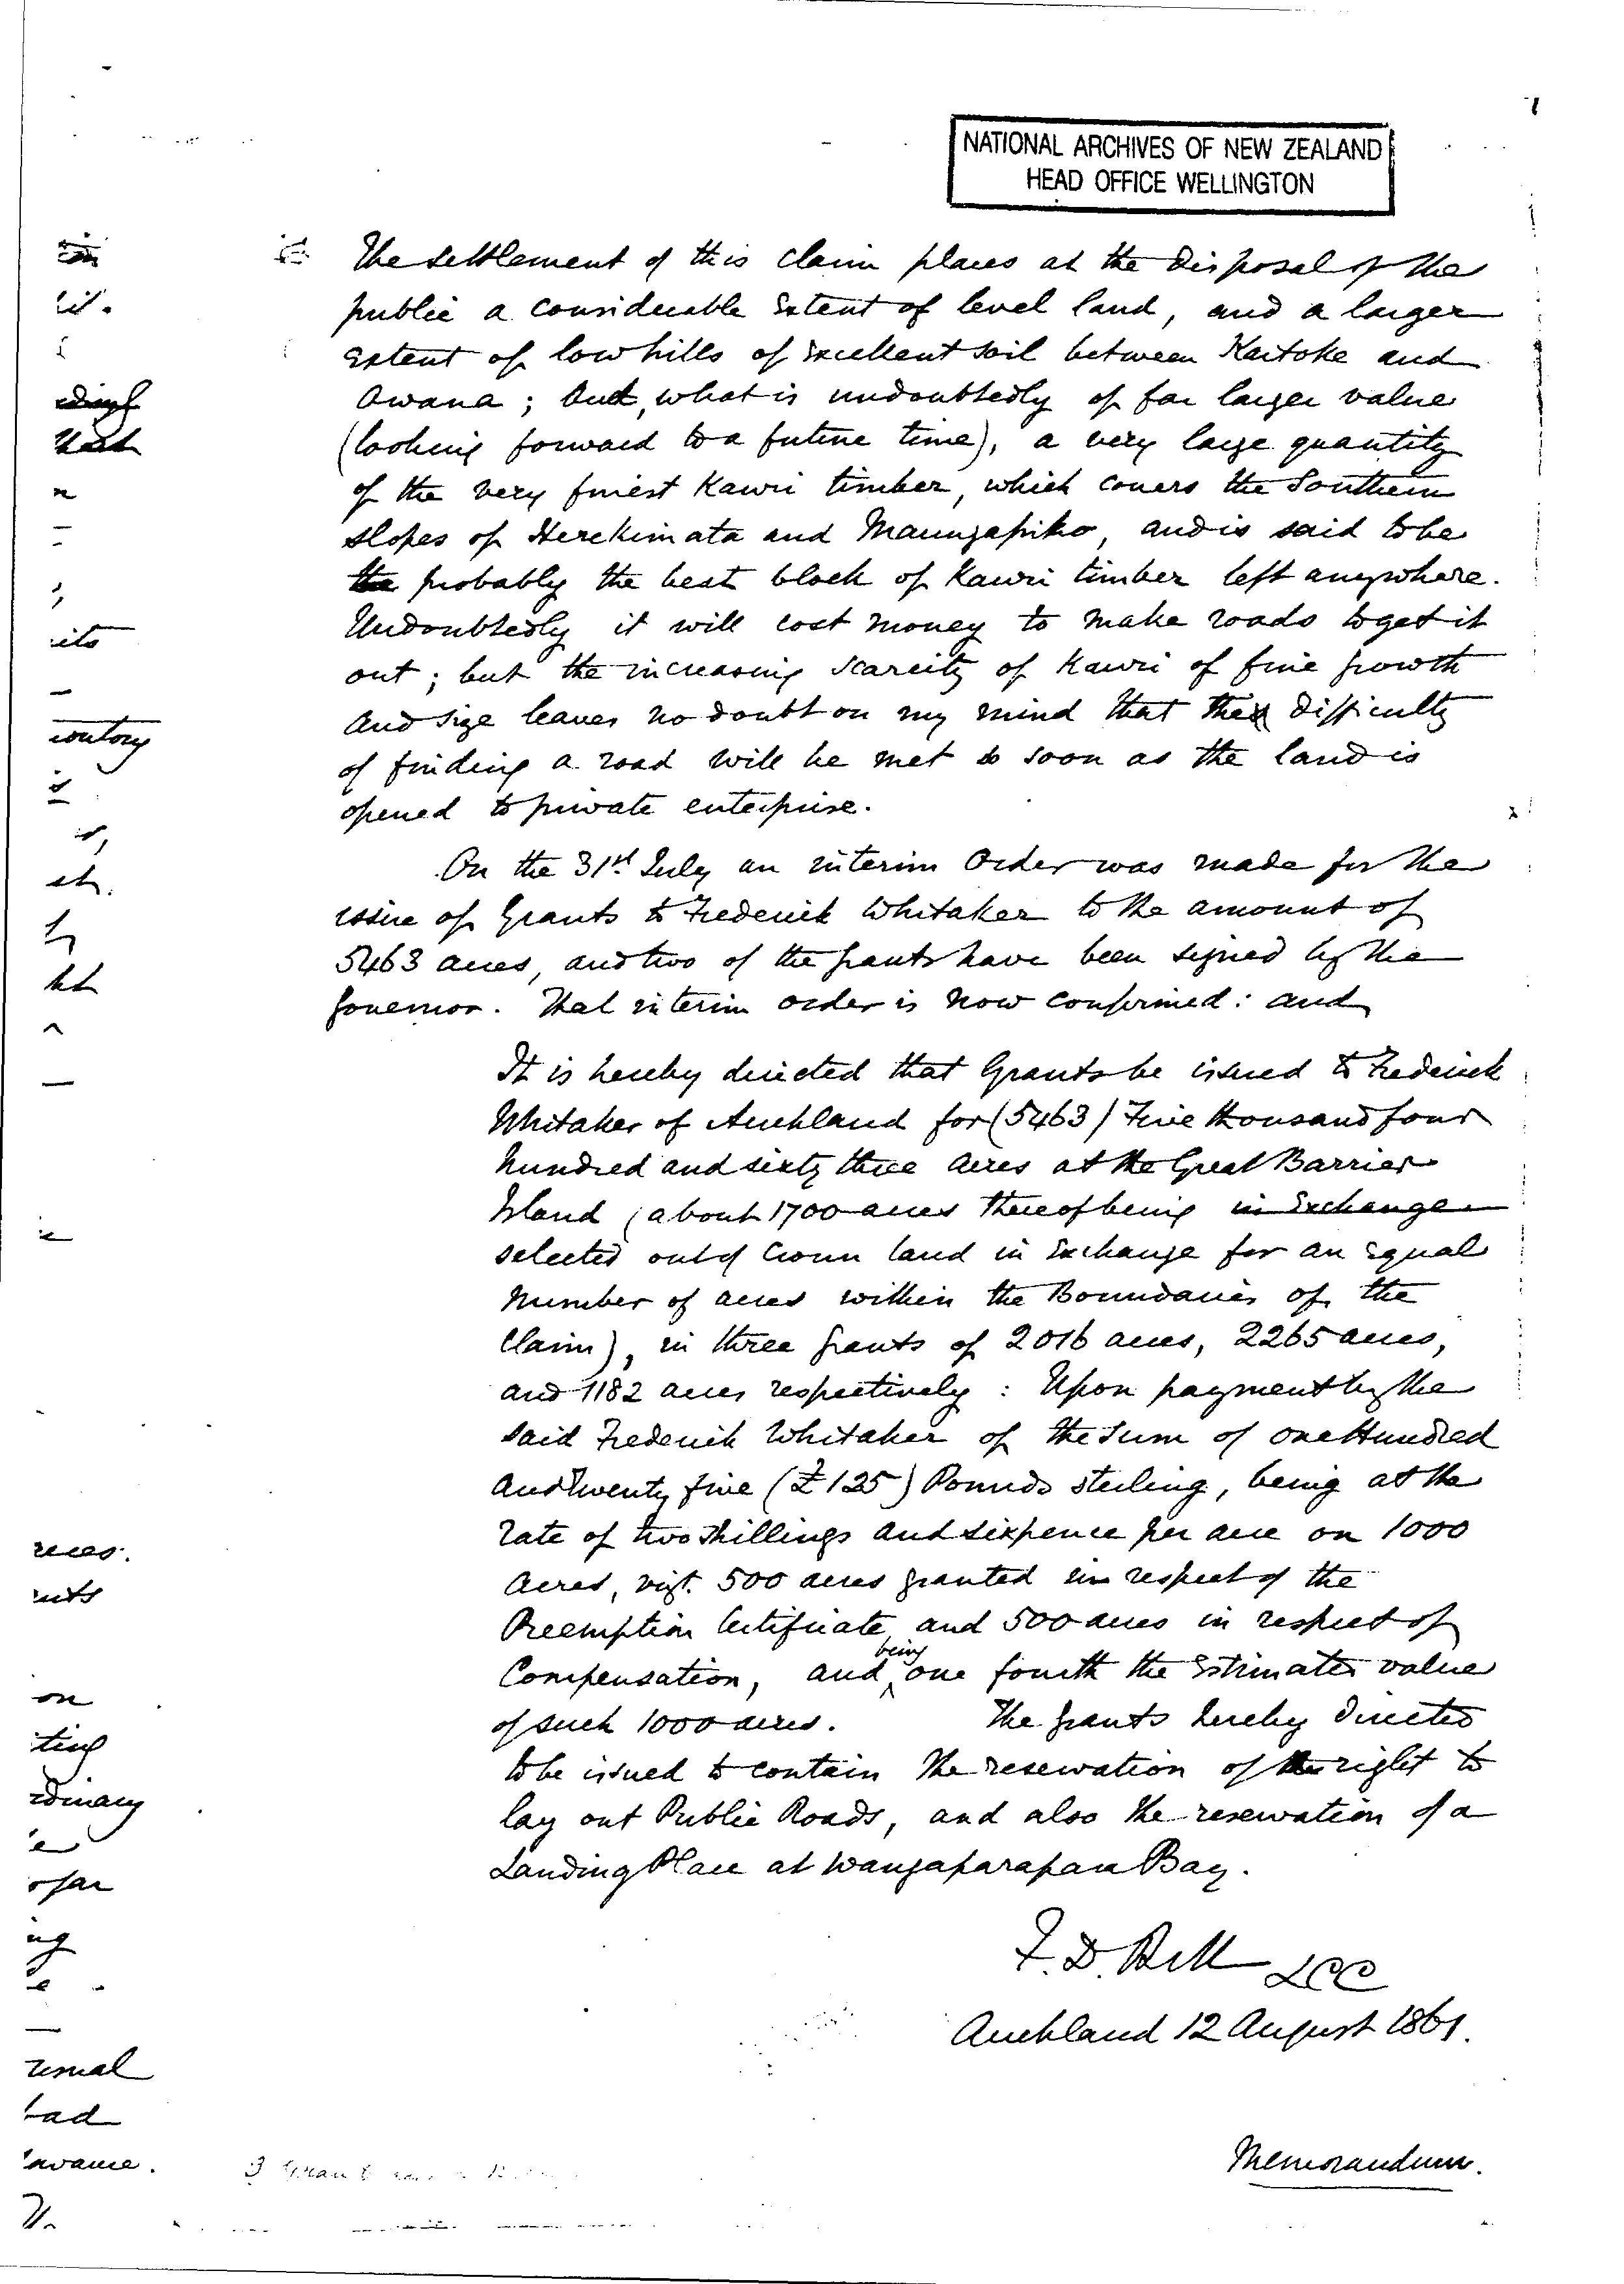 NATIONAL ARCHIVES OF NEW ZEALAND
HEAD OFFICE WELLINGTON
The settlement of this claim places at the disposal of the
public a considerable extent of level land, and a larger
extent of low hills of excellent soil between Kaitoke and
Awana; but, what is undoubtedly of far larger value
(looking forward to a future time), a very large quantity
of the very finest Kawri timber, which covers the Southern
slopes of Herekimata and Maungapiko, and is said to be
the probably the best block of Kawri timber left anywhere.
Undoubtedly it will cost money to make roads to get it
out; but the increasing scarcity of Kawri of fine growth
and size leaves no doubt on my mind that the difficulty
of finding a road will be met so soon as the land is
opened to private enterprise.
On the 31st July an interim Order was made for the
issue of Grants to Frederick Whitaker to the amount of
5463 acres, and two of the grants have been signed by the
Governor. That interim order is now confirmed: and
It is hereby directed that Grants be issued to Frederick
Whitaker of Auckland for (5463) Five thousand four
hundred and sixty three acres at the Great Barrier
Island (about 1700 acres thereof being in Exchange
selected out of Crown land in Exchange for an equal
number of acres within the Boundaries of the
claim), in three grants of 2016 acres, 2265 acres,
and 1182 acres respectively: Upon payment by the
said Frederick Whitaker of the sum of one Hundred
and twenty five (£125) Pounds sterling, being at the
rate of two shillings and sixpence per acre on 1000
acres, vizt. 500 acres granted in respect of the
Preemption Certificate, and 500 acres in respect of
Compensation, and being one fourth the estimated value
of such 1000 acres. The grants hereby directed
to be issued to contain the reservation of the right to
lay out Public Roads, and also the reservation of a
Landing Place at Wangaparapara Bay.
F. D. Bell LCC
Auckland 12 August 1861.
Memorandum.